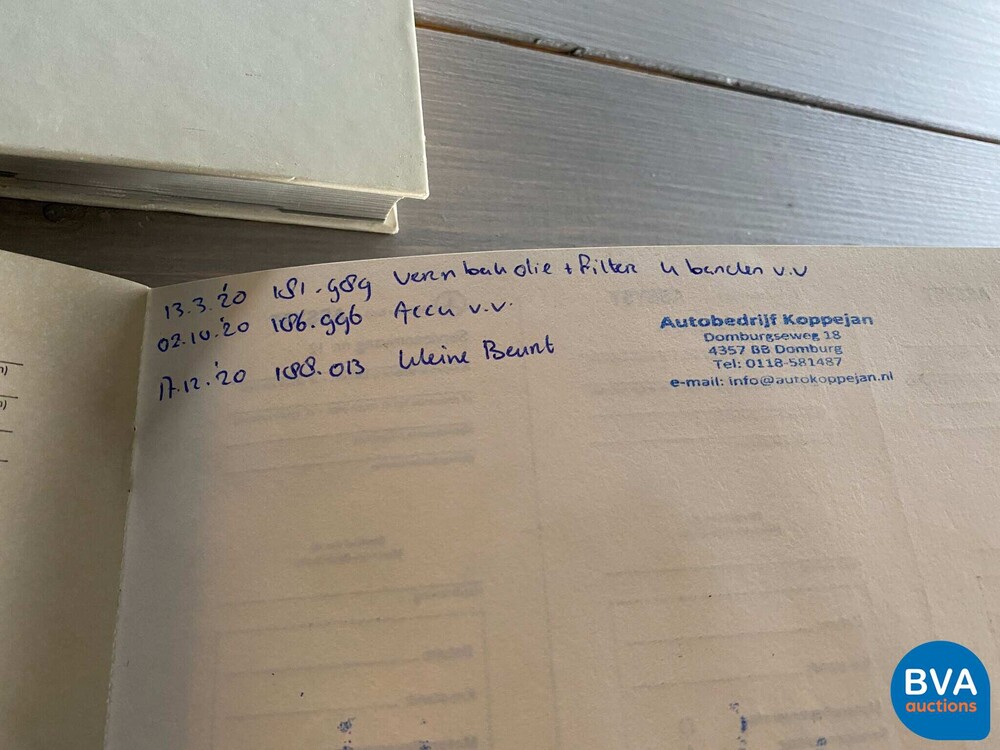 13.3.'20 181.989 versn bak olie + filter 4 banden v.v
02.10.'20 186.996 Accu v.v.
17.12.'20 188.013 kleine Beurt
Autobedrijf Koppejan
Domburgseweg 18
4357 BB Domburg
Tel: 0118-581487
e-mail: info@autokoppejan.nl
BVA
auctions